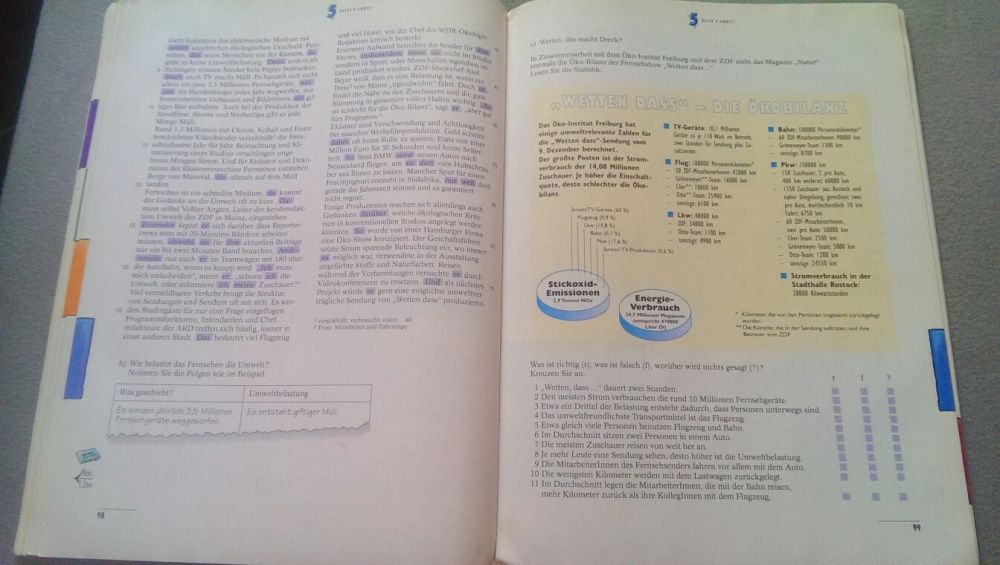 5 NATUR & UMWELT
Gern kokettiert das elektronische Medium mit
seiner angeblichen ökologischen Unschuld. Fern-
gebe es keine Umweltbelastung. Denn anders als
Zeitungen müssen Sender kein Papier bedrucken.
Doch auch TV macht Müll. Es handelt sich nicht
allein um jene 3,5 Millionen Fernsehgeräte, wel-
che die Bundesbürger jedes Jahr wegwerfen, mit
bromvernetzten Gehäusen und Bildröhren, die gif-
tiges Blei enthalten. Auch bei der Produktion der
Spielfilme, Shows und Werbeclips gibt es jede
Menge Müll.
Rund 1,3 Millionen mit Chrom, Kobalt und Eisen
beschichtete Videobänder verschleißt die Fern-
sehindustrie Jahr für Jahr. Beleuchtung und Kli-
matisierung eines Studios verschlingen unge-
heure Mengen Strom. Und für Kulissen und Deko-
ration der Illusionsmaschine Fernsehen entstehen
Berge von Material, die oftmals auf dem Müll
landen.
Fernsehen ist ein schnelles Medium, da kommt
der Gedanke an die Umwelt oft zu kurz. Das
muss selbst Volker Angres, Leiter der Senderedak-
tion Umwelt des ZDF in Mainz, eingestehen.
Einerseits ärgert er sich darüber, dass Reporter-
crews stets mit 20-Minuten-Bändern arbeiten
müssen, obwohl sie für ihre aktuellen Beiträge
nur ein bis zwei Minuten Band brauchen. Ande-
rerseits rast auch er im Teamwagen mit 180 über
die Autobahn, wenn es knapp wird. „Ich muss
mich entscheiden“, meint er, „schone ich die
Umwelt, oder informiere ich meine Zuschauer?“
Viel vermeidbaren Verkehr bringt die Struktur
von Sendungen und Sendern oft mit sich. Es wer-
den Studiogäste für nur eine Frage eingeflogen.
Programmdirektoren, Intendanten und Chef-
redakteure der ARD treffen sich häufig, immer in
einer anderen Stadt. Das bedeutet viel Flugzeug
und viel Hotel, wie der Chef der WDR-Ökologie-
Redaktion kritisch bemerkt.
Enormen Aufwand betreiben die Sender für ihre
Shows, insbesondere wenn sie nicht im Studio,
sondern in Sport- oder Messehallen irgendwo im
Land produziert werden. ZDF-Showchef Axel
Beyer weiß, dass es eine Belastung ist, wenn ein
Tross² von Mainz „irgendwohin“ fährt. Doch er
findet die Nähe zu den Zuschauern und die gute
Stimmung in garantiert vollen Hallen wichtig. „Da
ist schlecht für die Öko-Bilanz“, sagt er, „aber gut
fürs Programm.“
Eklatant sind Verschwendung und Achtlosigkeit
bei mancher Werbefilmproduktion. Geld scheint
dabei oft keine Rolle zu spielen. Etats von einer
Million Euro für 30 Sekunden sind keine Selten-
heit. So lässt BMW seine neuen Autos nach
Neuseeland fliegen, um sie dort vom Hubschrau-
ber aus filmen zu lassen. Mancher Spot für einen
Fruchtjoghurt entsteht in Südafrika, nur weil dort
gerade die Jahreszeit stimmt und es garantiert
nicht regnet.
Einige Produzenten machen sich allerdings auch
Gedanken darüber, welche ökologischen Krite-
rien in konventionellen Studios angelegt werden
können. So wurde von einer Hamburger Firma
eine Öko-Show konzipiert. Der Geschäftsführer
setzte Strom sparende Beleuchtung ein, wo immer
es möglich war, verwendete in der Ausstattung
ungefärbte Stoffe und Naturfarben. Reisen
während der Vorbereitungen versuchte er durch
Videokonferenzen zu ersetzen. Und als nächstes
Projekt würde er gern eine möglichst umweltver-
trägliche Sendung von „Wetten dass“ produzieren.
¹ verschleißt: verbraucht, nützt ...ab
² Tross: Mitarbeiter und Fahrzeuge
b) Wie belastet das Fernsehen die Umwelt?
Notieren Sie die Folgen wie im Beispiel.
Was geschieht? Umweltbelastung
Es werden jährlich 3,5 Millionen
Fernsehgeräte weggeworfen.
Es entsteht giftiger Müll.
98
5 NATUR & UMWELT
c) Wetten, das macht Dreck?
In Zusammenarbeit mit dem Öko-Institut Freiburg und dem ZDF zieht das Magazin „Natur“
erstmals die Öko-Bilanz der Fernsehshow „Wetten dass...“
Lesen Sie die Statistik.
„WETTEN DASS“ – DIE ÖKOBILANZ
Das Öko-Institut Freiburg hat
einige umweltrelevante Zahlen für
die „Wetten dass“-Sendung vom
9. Dezember berechnet.
Der größte Posten ist der Strom-
verbrauch der 14,08 Millionen
Zuschauer. Je höher die Einschalt-
quote, desto schlechter die Öko-
bilanz.
Strom/TV-Geräte (65 %)
Flugzeug (0,9 %)
Lkw (15,8 %)
Bahn (0,1 %)
Pkw (17,6 %)
Strom/TV-Produktion (0,6 %)
Stickoxid-
Emissionen
2,9 Tonnen NOx
Energie-
Verbrauch
24,7 Millionen Megajoule
(entspricht 470000
Liter Öl)
TV-Geräte: 10,1 Millionen
Geräte zu je 118 Watt im Betrieb;
zwei Stunden Sendung plus Zu-
satzzeiten
Flug: 100000 Personenkilometer*
– 30 ZDF-MitarbeiterInnen: 42000 km
– Grönemeyer**-Team: 16000 km
– Cher**: 10000 km
– Otto**-Team: 25900 km
– sonstige: 6100 km
Lkw: 40000 km
– ZDF: 34000 km
– Otto-Team: 1100 km
– sonstige: 4900 km
Bahn: 100000 Personenkilometer*
– 60 ZDF-MitarbeiterInnen, 90000 km
– Grönemeyer-Team: 1300 km
– sonstige: 8700 km
Pkw: 150000 km
– 150 Zuschauer, 2 pro Auto,
400 km entfernt: 60000 km
– 1350 Zuschauer aus Rostock und
naher Umgebung, gerechnet zwei
pro Auto, durchschnittlich 10 km
Fahrt: 6750 km
– 60 ZDF-MitarbeiterInnen,
zwei pro Auto: 50000 km
– Cher-Team: 2500 km
– Grönemeyer-Team: 5000 km
– Otto-Team: 1200 km
– sonstige: 24550 km
Stromverbrauch in der
Stadthalle Rostock:
20000 Kilowattstunden
* Kilometer, die von den Personen insgesamt zurückgelegt
wurden
** Die Künstler, die in der Sendung auftraten, und ihre
Betreuer vom ZDF
Was ist richtig (r), was ist falsch (f), worüber wird nichts gesagt (?)?
Kreuzen Sie an.
r f ?
1 „Wetten, dass...“ dauert zwei Stunden.
2 Den meisten Strom verbrauchen die rund 10 Millionen Fernsehgeräte.
3 Etwa ein Drittel der Belastung entsteht dadurch, dass Personen unterwegs sind.
4 Das umweltfreundlichste Transportmittel ist das Flugzeug.
5 Etwa gleich viele Personen benutzen Flugzeug und Bahn.
6 Im Durchschnitt sitzen zwei Personen in einem Auto.
7 Die meisten Zuschauer reisen von weit her an.
8 Je mehr Leute eine Sendung sehen, desto höher ist die Umweltbelastung.
9 Die MitarbeiterInnen des Fernsehsenders fahren vor allem mit dem Auto.
10 Die wenigsten Kilometer werden mit dem Lastwagen zurückgelegt.
11 Im Durchschnitt legen die MitarbeiterInnen, die mit der Bahn reisen,
mehr Kilometer zurück als ihre KollegInnen mit dem Flugzeug.
99